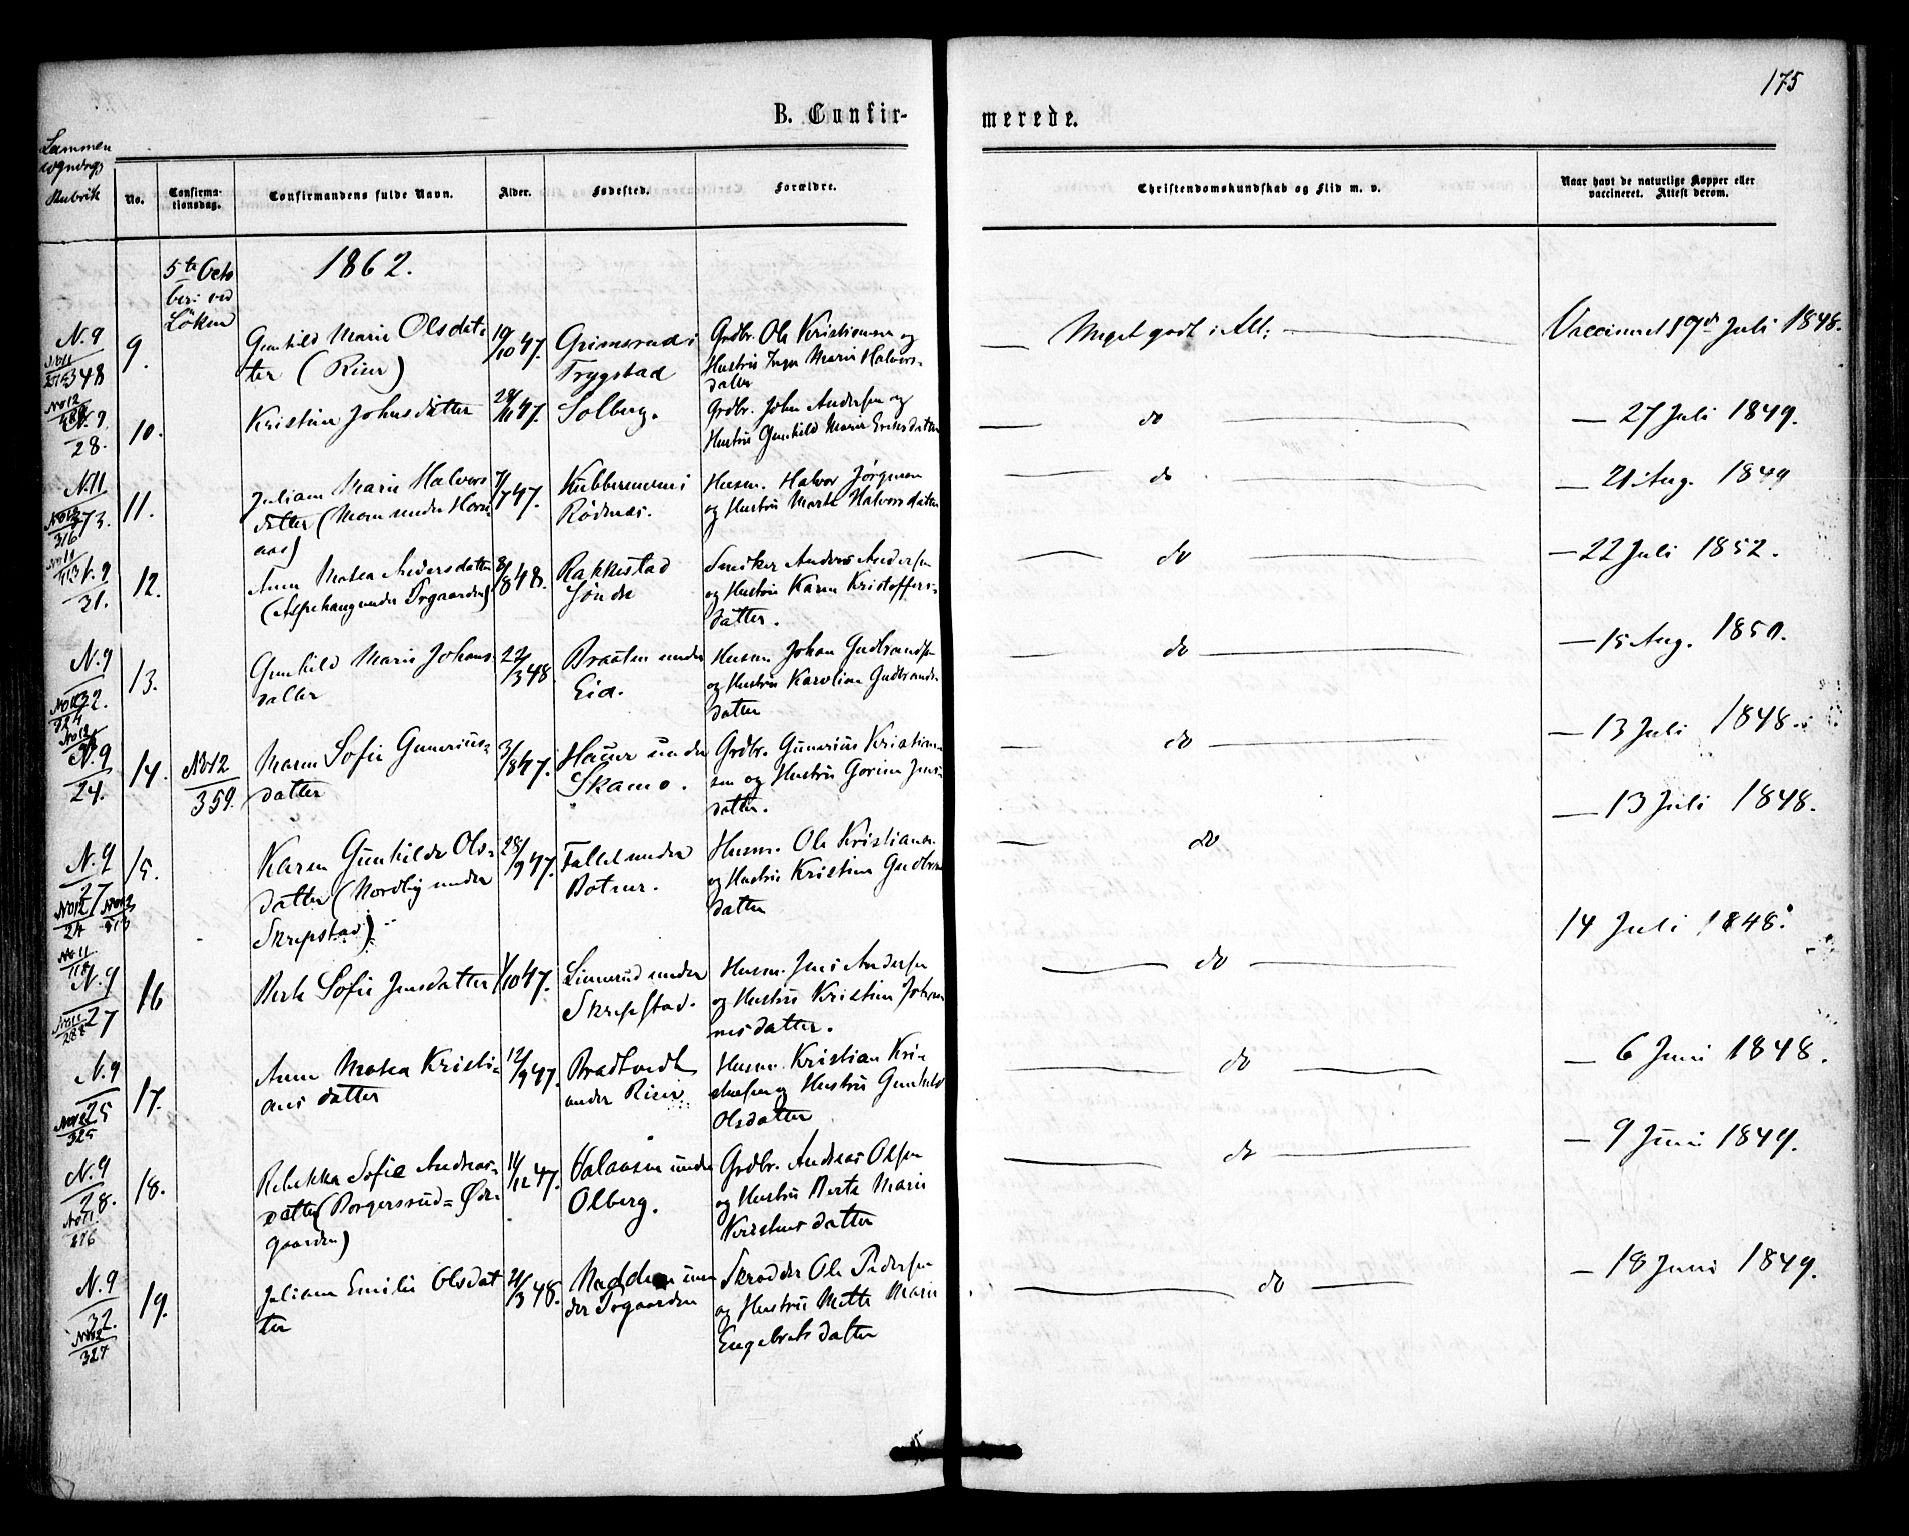 175
B. Confir-
merede.
Sammen
Rubrik
No.
Confirma-
tionsdag.
Confirmandens fulde Navn.
Alder.
Fødested.
Forældre.
Christendomskundskab og Flid m. v.
Naar havt de naturlige Kopper eller
vaccineret. Attest derom.
5te Octo
ber: ved
Löken
1862.
N. 9
348
9.
Gunhild Marie Olsdat-
ter (Rier)
19/10 47.
Grimsrud i
Trygstad
Grdbr. Ole Kristiansen og
Hustru Inger Marie Halvors-
datter
Meget godt i Alt.
Vaccineret 19de Juli 1848.
28.
10.
Kristine Johnsdatter
47.
Solberg.
Grdbr. John Andersen og
Hustru Gunhild Marie Eriksdatter
do
— 27 Juli 1849.
N. 11
73.
11.
Juliane Marie Halvors
datter (Moen under Horn
aas)
7/7 47.
Kubberement i
Rödnæs.
Husm. Halvor Jørgensen
og Hustru Marte Halvorsdatter
do
— 21 Aug. 1849
N. 9
31.
12.
Anne Mathea Andersdatter
(Aspehaug under Prgaarden)
8/8 48.
Rakkestad
Söndre
Snekker Anders Andersen
og Hustru Karen Kristoffers-
datter.
do
— 22 Juli 1852.
N. 9
32.
13.
Gunhild Marie Johans-
datter
22/3 48
Braaten under
Eid.
Husm. Johan Gudbrandsen
og Hustru Karoline Gudbrands-
datter
do
— 15 Aug. 1850.
N. 9
24.
14.
No 12
359.
Maren Sofie Gunerius-
datter
3/8 47.
Hauer under
Skamo.
Grdbr. Gunerius Kristian-
sen og Hustru Gorine Jens-
datter.
do
— 13 Juli 1848.
N. 9
27
15.
Karen Gunhilde Ols-
datter (Nordby under
Skrepstad)
28/9 47.
Fallet under
Botner.
Husm. Ole Kristiansen
og Hustru Kristine Gudbrands
datter
do
— 13 Juli 1848.
N. 9
27
16
Berte Sofie Jensdatter
1/10 47.
Linnerud under
Skrepstad.
Husm. Jens Andersen
og Hustru Kristine Johan
nesdatter.
do
14 Juli 1848.
N. 9
25
325
17.
Anne Mathea Kristi-
ans datter
12/9 47.
Bradtvedt
under Rier
Husm. Kristian Kri-
stiansen og Hustru Gunhild
Olsdatter
do
— 6 Juni 1848.
N. 9
28.
18.
Rebekka Sofie Andreas-
datter (Borgersrud-Øde-
gaarden)
47.
Halausen under
Olberg.
Grdbr. Andreas Olsen
og Hustru Berte Marie
Kristensdatter
do
— 9 Juni 1849.
N. 9
32.
327
19.
Juliane Emilie Olsdat
ter
21/3 48.
Nadderen un
der Prgaarden
Skrædder Ole Pedersen
og Hustru Mette Marie
Engebretsdatter
do
— 18 Juni 1849.